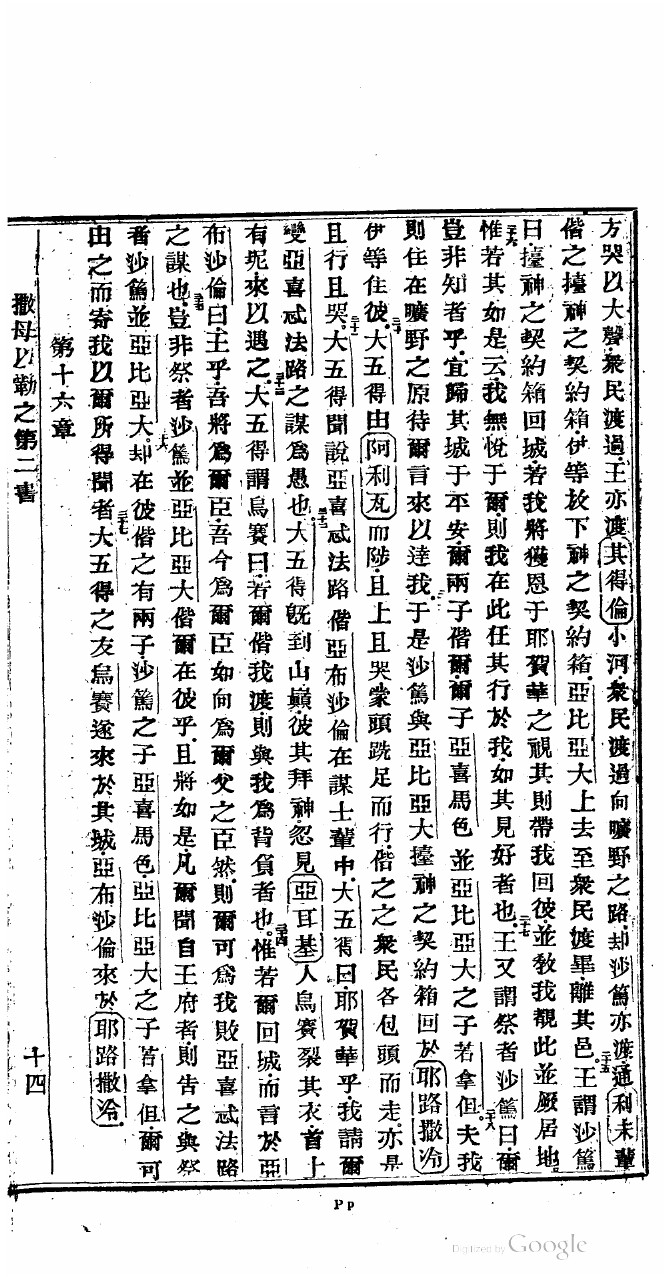 方哭以大聲衆民渡過王亦渡其得倫小河衆民渡過向曠野之路却沙篤亦渡通利未輩
偕之擡神之契約箱伊等放下神之契約箱亞比亞大上去至衆民渡畢離其邑王謂沙篤
曰擡神之契約箱回城若我將獲恩于耶賀華之視其則帶我回彼並教我覩此並厥居地
惟若其如是云我無悅于爾則我在此任其行於我如其見好者也王又謂祭者沙篤曰爾
豈非知者乎宜歸其城于平安爾兩子偕爾爾子亞喜馬色並亞比亞大之子若拿但夫我
則住在曠野之原待爾言來以達我于是沙篤與亞比亞大擡神之契約箱回於耶路撒冷
伊等住彼大五得由阿利瓦而陟且上且哭蒙頭跣足而行偕之之衆民各包頭而走亦是
且行且哭大五得聞說亞喜忒法路偕亞布沙倫在謀士輩中大五得曰耶賀華乎我請爾
變亞喜忒法路之謀爲愚也大五得旣到山巔彼其拜神忽見亞耳基人烏賽裂其衣首上
有坭來以遇之大五得謂烏賽曰若爾偕我渡則與我爲背負者也惟若爾回城而言於亞
布沙倫曰王乎吾將爲爾臣吾今爲爾臣如向爲爾父之臣然則爾可爲我敗亞喜忒法路
之謀也豈非祭者沙篤並亞比亞大偕爾在彼乎且將如是凡爾聞自王府者則告之與祭
者沙篤並亞比亞大却在彼偕之有兩子沙篤之子亞喜馬色亞比亞大之子若拿但爾可
由之而寄我以爾所得聞者大五得之友烏賽遂來於其城亞布沙倫來於耶路撒冷
第十六章
撒母以勒之第二書 十四
Pp
Digitized by Google